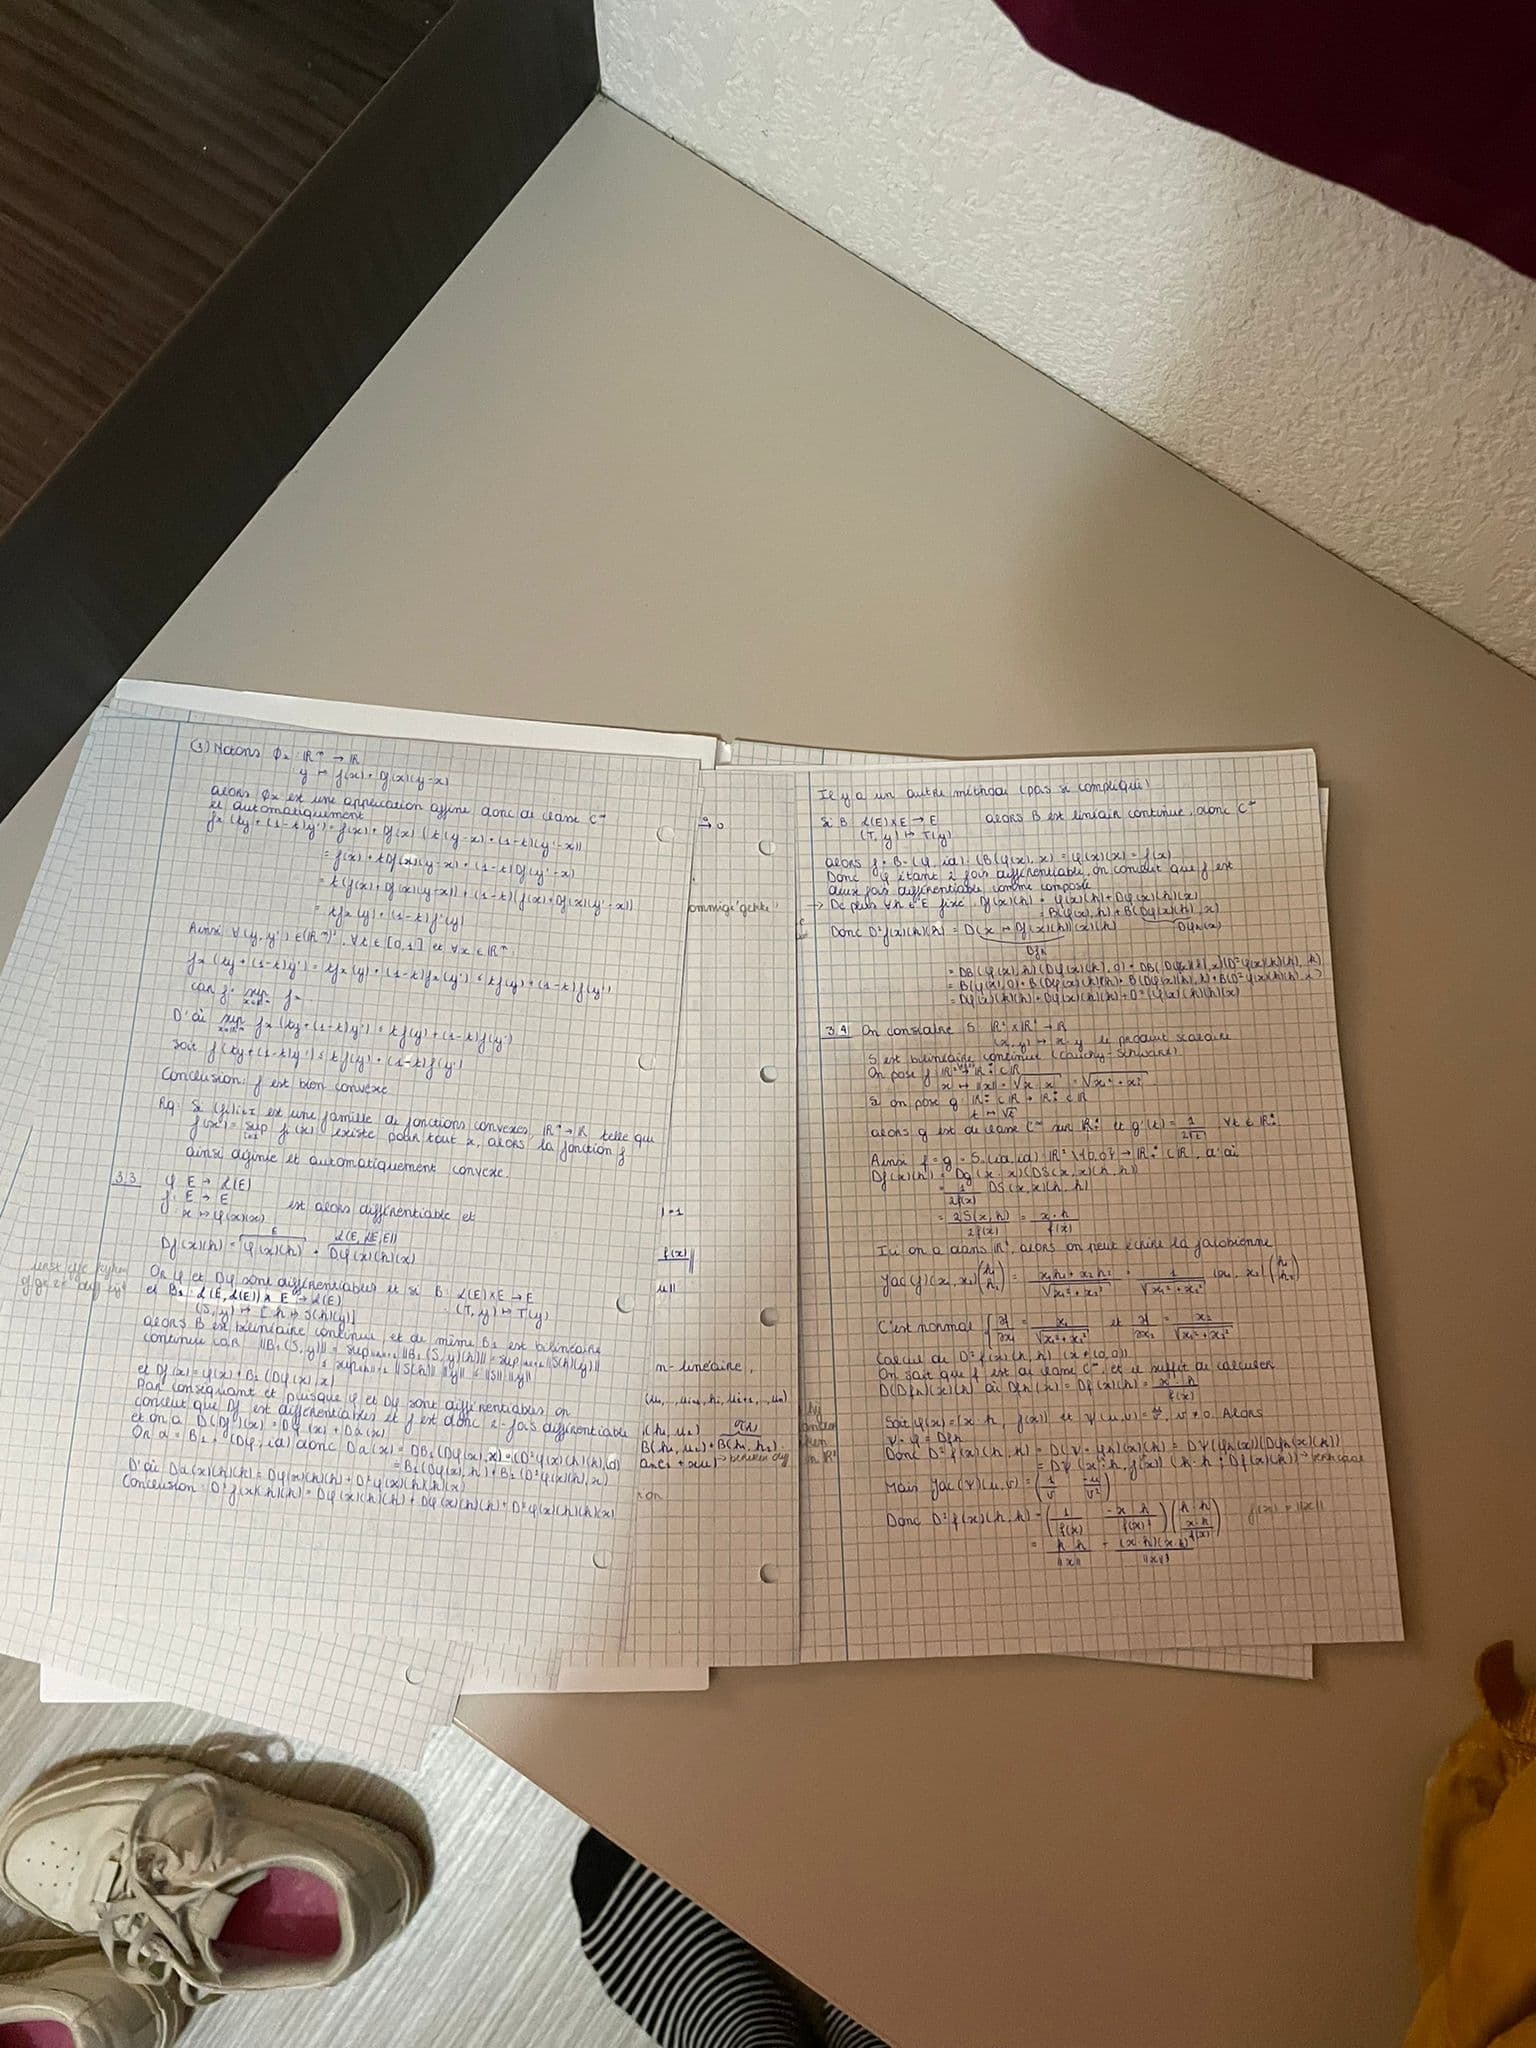 (3) Notons ϕx : ℝⁿ → ℝ
y ↦ f(x) + Df(x)(y-x)
alors ϕx est une application affine donc de classe C^∞
et automatiquement
fx(ty + (1-t)y') = f(x) + Df(x)(t(y-x) + (1-t)(y'-x))
= f(x) + tDf(x)(y-x) + (1-t)Df(y'-x)
= t(f(x) + Df(x)(y-x)) + (1-t)(f(x) + Df(x)(y'-x))
= tfx(y) + (1-t)f'(y)
Ainsi ∀(y,y') ∈ (ℝⁿ)², ∀t ∈ [0,1] et ∀x ∈ ℝⁿ
fx(ty + (1-t)y') = tfx(y) + (1-t)fx(y') ≤ tf(y) + (1-t)f(y')
car f = sup fx
D'où sup fx(ty + (1-t)y') ≤ tf(y) + (1-t)f(y')
soit f(ty + (1-t)y') ≤ tf(y) + (1-t)f(y')
Conclusion: f est bien convexe
Rq: Si (fi)i∈I est une famille de fonctions convexes ℝⁿ → ℝ telle que
f(x) = sup fi(x) existe pour tout x, alors la fonction f
ainsi définie est automatiquement convexe.
3.3 φ E → L(E)
f: E → E
x ↦ φ(x)(x) est alors différentiable et
E L(E, L(E,E))
Df(x)(h) = φ(x)(h) + Dφ(x)(h)(x)
Or φ et Dφ sont différentiables et si B: L(E)×E → E
(T,y) ↦ T(y)
et B₁: L(E, L(E)) × E → L(E)
(S,y) ↦ [h ↦ S(h)(y)]
alors B est bilinéaire continue, et de même B₁ est bilinéaire
continue car ||B₁(S,y)|| = sup ||B₁(S,y)(h)|| = sup ||S(h)(y)||
≤ sup ||S(h)|| ||y|| ≤ ||S|| ||y||
et Df(x) = φ(x) + B₁(Dφ(x), x)
Par conséquant et puisque φ et Dφ sont différentiables, on
conclut que Df est différentiables et f est donc 2-fois différentiable
et on a D(Df)(x) = Dφ(x) + Da(x)
Or a = B₁ ∘ (Dφ, id) donc Da(x) = DB₁(Dφ(x), x) ∘ (D²φ(x)(h)(h), d)
= B₁(Dφ(x), h) + B₁(D²φ(x)(h), x)
D'où Da(x)(h)(h) = Dφ(x)(h)(h) + D²φ(x)(h)(h)(x)
Conclusion: D²f(x)(h)(h) = Dφ(x)(h)(h) + Dφ(x)(h)(h) + D²φ(x)(h)(h)(x)
→ 0
i=1
f(x)
n-linéaire,
B(h₁, u₂) + B(h₁, h₂).
on
Il y a un autre méthode (pas si compliqué)
Si B L(E)×E → E alors B est linéair continue, donc C^∞
(T, y) ↦ T(y)
alors f = B ∘ (φ, id): (B(φ(x), x) = φ(x)(x) = f(x)
Donc φ étant 2 fois différentiable, on conclut que f est
deux fois différentiable comme composée
→ De plus ∀h ∈ E fixé Df(x)(h) = φ(x)(h) + Dφ(x)(h)(x)
= B(φ(x), h) + B(Dφ(x)(h), x)
Donc D²f(x)(h)(h) = D(x ↦ Df(x)(h))(x)(h) Dφh(x)
Dfh
= B(φ(x), 0) + B(Dφ(x)(h), h) + B(Dφ(x)(h), h) + B(D²φ(x)(h)(h), x)
= Dφ(x)(h)(h) + Dφ(x)(h)(h) + D²(φ(x)(h)(h)(x)
3.4 On considère S ℝ² × ℝ² → ℝ
(x,y) ↦ x·y le produit scalaire
S est bilinéaire continue (Cauchy-Schwarz)
On pose f ℝ² → ℝ⁺ ⊂ ℝ
x ↦ ||x|| = √x·x = √x₁² + x₂²
Si on pose g: ℝ⁺* ⊂ ℝ → ℝ⁺* ⊂ ℝ
t ↦ √t
alors g est de classe C^∞ sur ℝ⁺* et g'(t) = 1/2√t ∀t ∈ ℝ⁺*
Ainsi f = g ∘ S ∘ (id, id): ℝ² \ {0,0} → ℝ⁺* ⊂ ℝ, d'où
Df(x)(h) = Dg(x·x)(DS(x,x)(h,h))
= 1/2f(x) DS(x,x)(h,h)
= 2S(x,h)/2f(x) = x·h/f(x)
Ici on a dans ℝ², alors on peut écrire la jacobienne
Jac(f)(x₁, x₂)(h₁ h₂) = x₁h₁ + x₂h₂/√x₁² + x₂² = 1/√x₁² + x₂² (x₁, x₂)(h₁ h₂)
C'est normal ∂f/∂x₁ = x₁/√x₁² + x₂² et ∂f/∂x₂ = x₂/√x₁² + x₂²
Calcul de D²f(x)(h,h) (x ≠ (0,0))
On sait que f est de classe C^∞, et il suffit de calculer
D(Dfh)(x)(h) où Dfh(x) = Df(x)(h) = x·h/f(x)
Soit φ(x) = (x·h, f(x)) et ψ(u,v) = u/v, v ≠ 0. Alors
ψ ∘ φ = Dfh
Donc D²f(x)(h,h) = D(ψ ∘ φh)(x)(h) = Dψ(φh(x))(Dφh(x)(h))
= Dψ(x·h, f(x))(h·h ; Df(x)(h))
Mais Jac(ψ)(u,v) = (1/v -u/v²)
Donc D²f(x)(h,h) = (1/f(x) -x·h/f(x)²)(h·h x·h/f(x)) f(x) = ||x||
= h·h/||x|| - (x·h)(x·h)/||x||³